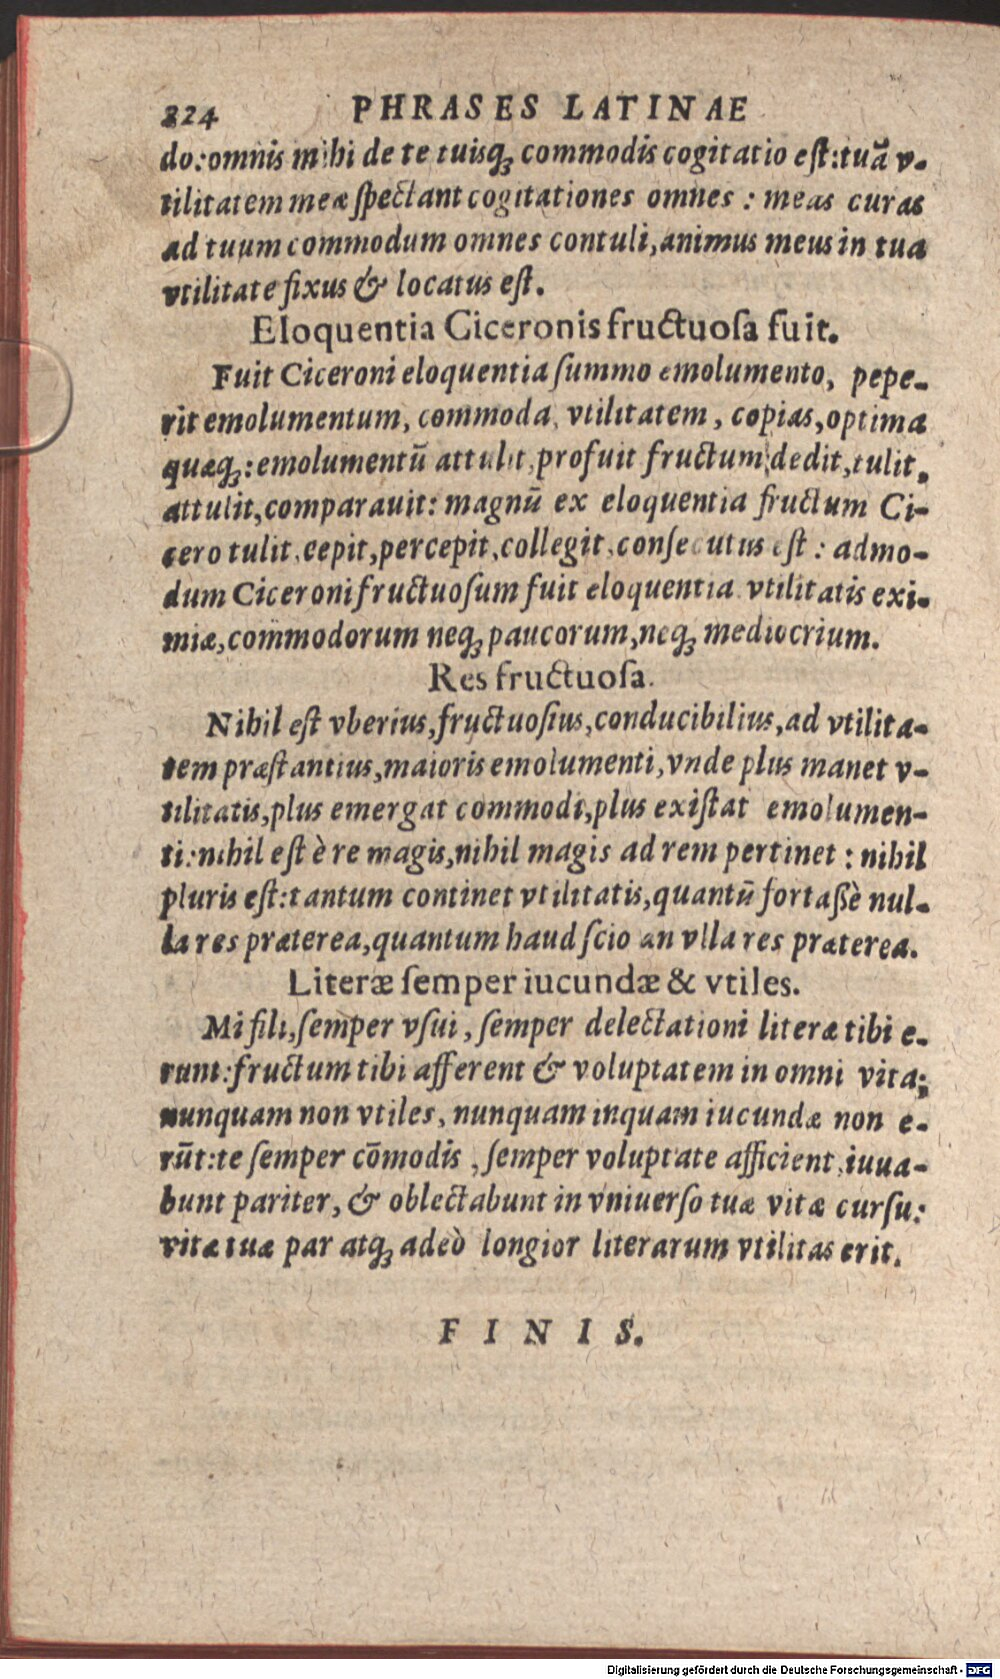 824 PHRASES LATINAE
do:omnis mihi de te tuisq́ꝫ commodis cogitatio eſt:tuā v-
tilitatem meæ ſpectant cogitationes omnes : meas curas
ad tuum commodum omnes contuli,animus meus in tua
vtilitate fixus & locatus eſt.
Eloquentia Ciceronis fructuoſa fuit.
Fuit Ciceroni eloquentia ſummo emolumento, pepe-
rit emolumentum, commoda, vtilitatem, copias,optima
quæq́ꝫ:emolumentū attulit,profuit fructum dedit,tulit,
attulit,comparauit: magnū ex eloquentia fructum Ci-
cero tulit,cepit,percepit,collegit,conſecutus eſt : admo-
dum Ciceroni fructuoſum fuit eloquentia vtilitatis exi-
miæ,commodorum neq́ꝫ paucorum,neq́ꝫ mediocrium.
Res fructuoſa.
Nihil eſt vberius,fructuoſius,conducibilius,ad vtilita-
tem præſtantius,maioris emolumenti,vnde plus manet v-
tilitatis,plus emergat commodi,plus exiſtat emolumen-
ti:nihil eſt è re magis,nihil magis ad rem pertinet : nihil
pluris eſt:tantum continet vtilitatis,quantū fortaßè nul-
la res præterea,quantum haud ſcio an vlla res præterea.
Literæ ſemper iucundæ & vtiles.
Mi fili,ſemper vſui, ſemper delectationi literæ tibi e-
runt:fructum tibi afferent & voluptatem in omni vita;
nunquam non vtiles, nunquam inquam iucundæ non e-
rūt:te ſemper cōmodis, ſemper voluptate afficient,iuua-
bunt pariter, & oblectabunt in vniuerſo tuæ vitæ curſu:
vitæ tuæ par atq́ꝫ adeò longior literarum vtilitas erit.
FINIS.
Digitalisierung gefördert durch die Deutsche Forschungsgemeinschaft - DFG